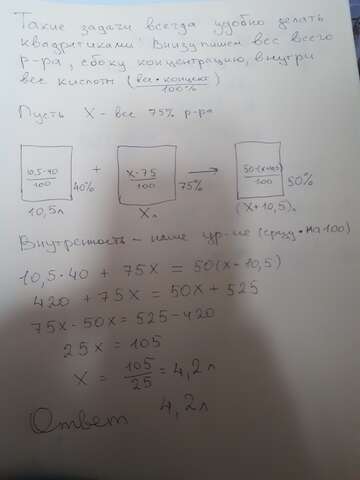 Такие задачи всегда удобно делать
квадратиками! Внизу пишем вес всего
р-ра, сбоку концентрацию, внутри
вес кислоты (вес·концент/100%)
Пусть X - вес 75% р-ра
10,5·40/100 40% + X·75/100 75% → 50·(X+10,5)/100 50%
10,5л Xл (X+10,5)л
Внутренность - наше ур-ие (сразу *на 100)
10,5·40 + 75X = 50(X+10,5)
420 + 75X = 50X + 525
75X - 50X = 525 - 420
25X = 105
X = 105/25 = 4,2л
Ответ 4,2л